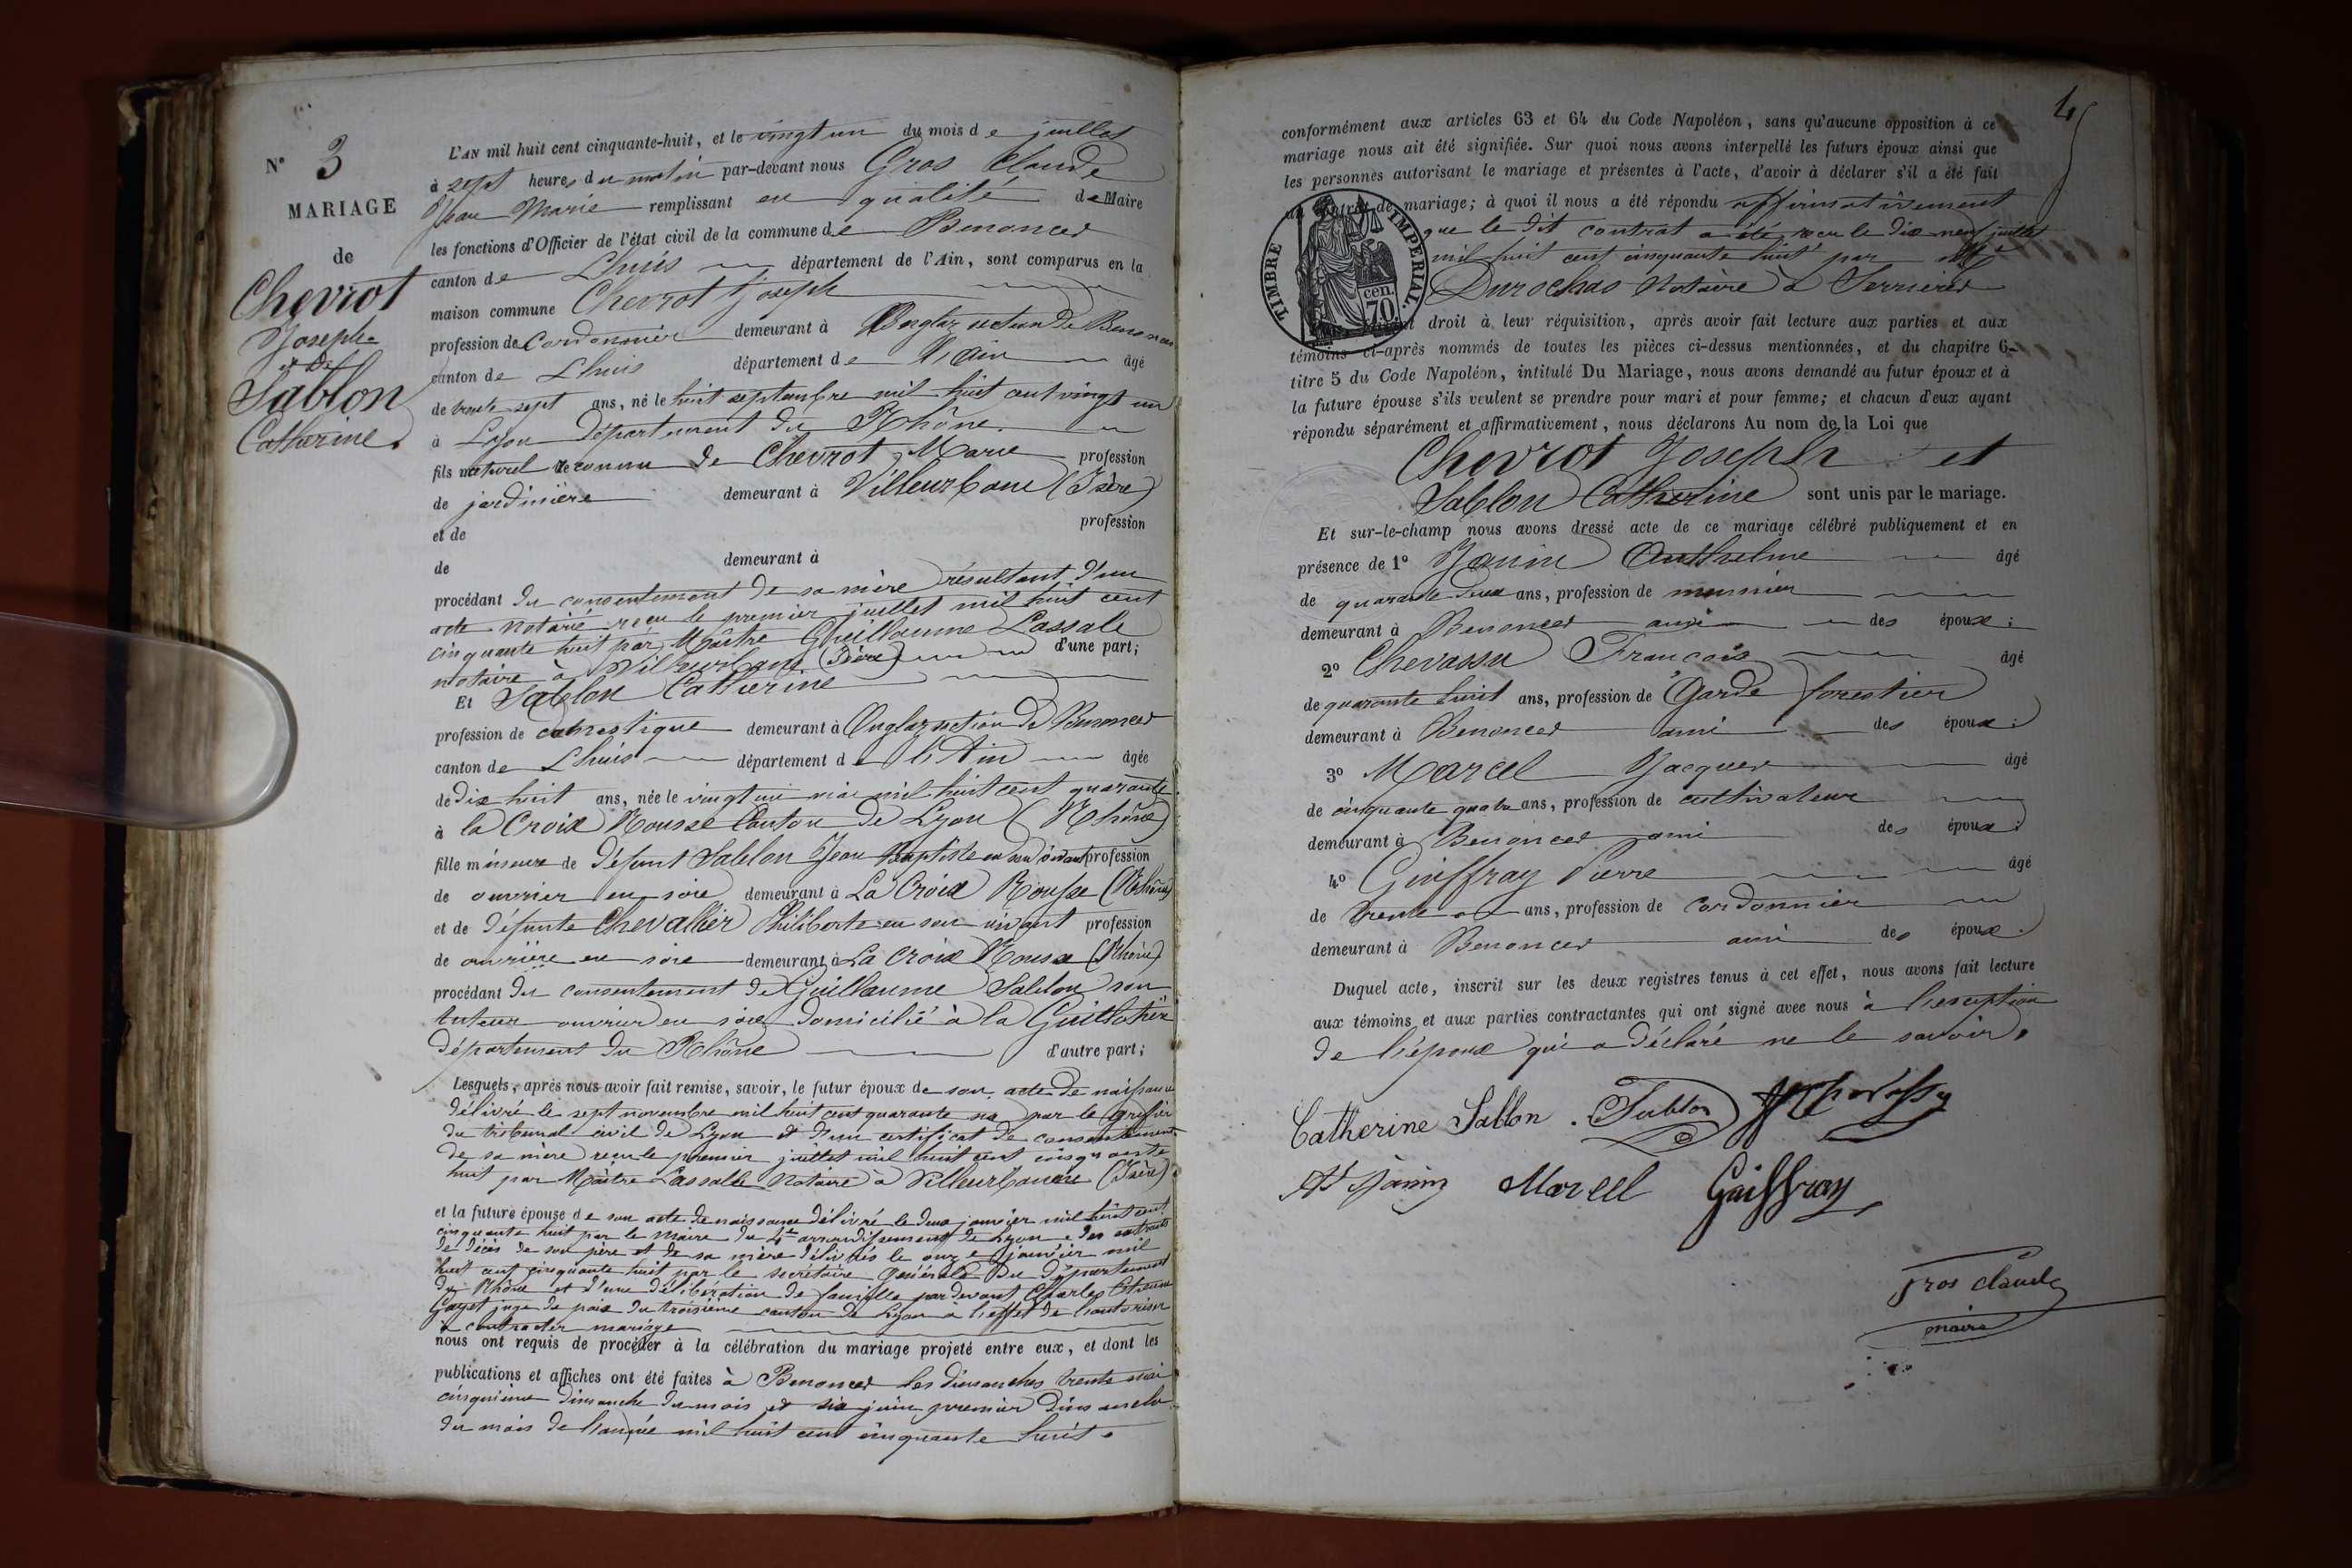 N° 3
MARIAGE
de
Chevrot
Joseph
et de
Sablon
Catherine.
L'AN mil huit cent cinquante-huit, et le vingt un du mois de juillet
à sept heures du matin par-devant nous Gros Claude
Jean Marie remplissant en qualité de Maire
les fonctions d'Officier de l'état civil de la commune de Benonces
canton de Lhuis département de l'Ain, sont comparus en la
maison commune Chevrot Joseph
profession de Cordonnier demeurant à Onglaz section de Benonces
canton de Lhuis département de l'ain âgé
de trente sept ans, né le huit septembre mil huit cent vingt un
à Lyon Département du Rhône
fils naturel reconnu de Chevrot Marie profession
de jardinière demeurant à Villeurbane (Isère)
et de profession
de demeurant à
procédant du consentement de sa mère résultant d'un
acte notarié reçu le premier juillet mil huit cent
cinquante huit par Maître Guillaume Lassale
notaire à Villeurbane (Isère) d'une part;
Et Sablon Catherine
profession de domestique demeurant à Onglaz section de Benonces
canton de Lhuis département de l'Ain âgée
de dix huit ans, née le vingt un mai mil huit cent quarante
à la Croix Rousse Canton de Lyon (Rhône)
fille mineure de défunt Sablon Jean Baptiste en son vivant profession
de ouvrier en soie demeurant à La Croix Rousse (Rhône)
et de défunte Chevallier Philiberte en son vivant profession
de ouvrière en soie demeurant à La Croix Rousse (Rhône)
procédant du consentement de Guillaume Sablon son
tuteur ouvrier en soie domicilié à la Guillotière
département du Rhône d'autre part;
Lesquels, après nous avoir fait remise, savoir, le futur époux de son acte de naissance
délivré le sept novembre mil huit cent quarante un par le greffier
du tribunal civil de Lyon et d'un certificat de consentement
de sa mère reçu le premier juillet mil huit cent cinquante
huit par Maître Lassalle Notaire à Villeurbanne (Isère)
et la future épouse de son acte de naissance délivré le deux janvier mil huit cent
cinquante huit par le Maire du 4e arrondissement de Lyon des extraits
de décès de son père et de sa mère délivrés le onze janvier mil
huit cent cinquante huit par le secrétaire général du département
du Rhône et d'une délibération de famille pardevant Charles Etienne
Gayet juge de paix du troisième canton de Lyon à l'effet de l'autoriser
à contracter mariage
nous ont requis de procéder à la célébration du mariage projeté entre eux, et dont les
publications et affiches ont été faites à Benonces les dimanches trente mai
cinquième dimanche du mois et six juin premier dimanche
du mois de l'année mil huit cent cinquante huit.
4
conformément aux articles 63 et 64 du Code Napoléon, sans qu'aucune opposition à ce
mariage nous ait été signifiée. Sur quoi nous avons interpellé les futurs époux ainsi que
les personnes autorisant le mariage et présentes à l'acte, d'avoir à déclarer s'il a été fait
un contrat de mariage; à quoi il nous a été répondu affirmativement
que le dit contrat a été reçu le dix neuf juillet
mil huit cent cinquante huit par
Durochas Notaire à Serrières
TIMBRE IMPERIAL.
cen.
70
droit à leur réquisition, après avoir fait lecture aux parties et aux
témoins ci-après nommés de toutes les pièces ci-dessus mentionnées, et du chapitre 6
titre 5 du Code Napoléon, intitulé Du Mariage, nous avons demandé au futur époux et à
la future épouse s'ils veulent se prendre pour mari et pour femme; et chacun d'eux ayant
répondu séparément et affirmativement, nous déclarons Au nom de la Loi que
Chevrot Joseph et
Sablon Catherine sont unis par le mariage.
Et sur-le-champ nous avons dressé acte de ce mariage célébré publiquement et en
présence de 1° Janin Anthelme âgé
de quarante deux ans, profession de meunier
demeurant à Benonces ami des époux;
2° Chevassu François âgé
de quarante huit ans, profession de Garde forestier
demeurant à Benonces ami des époux;
3° Marcel Jacques âgé
de cinquante quatre ans, profession de cultivateur
demeurant à Benonces ami des époux;
4° Guiffray Pierre âgé
de trente ans, profession de cordonnier
demeurant à Benonces ami des époux.
Duquel acte, inscrit sur les deux registres tenus à cet effet, nous avons fait lecture
aux témoins et aux parties contractantes qui ont signé avec nous à l'exception
de l'époux qui a déclaré ne le savoir.
Catherine Sablon . Sablon
At Janin Marcel Guiffray
Gros Claude
maire